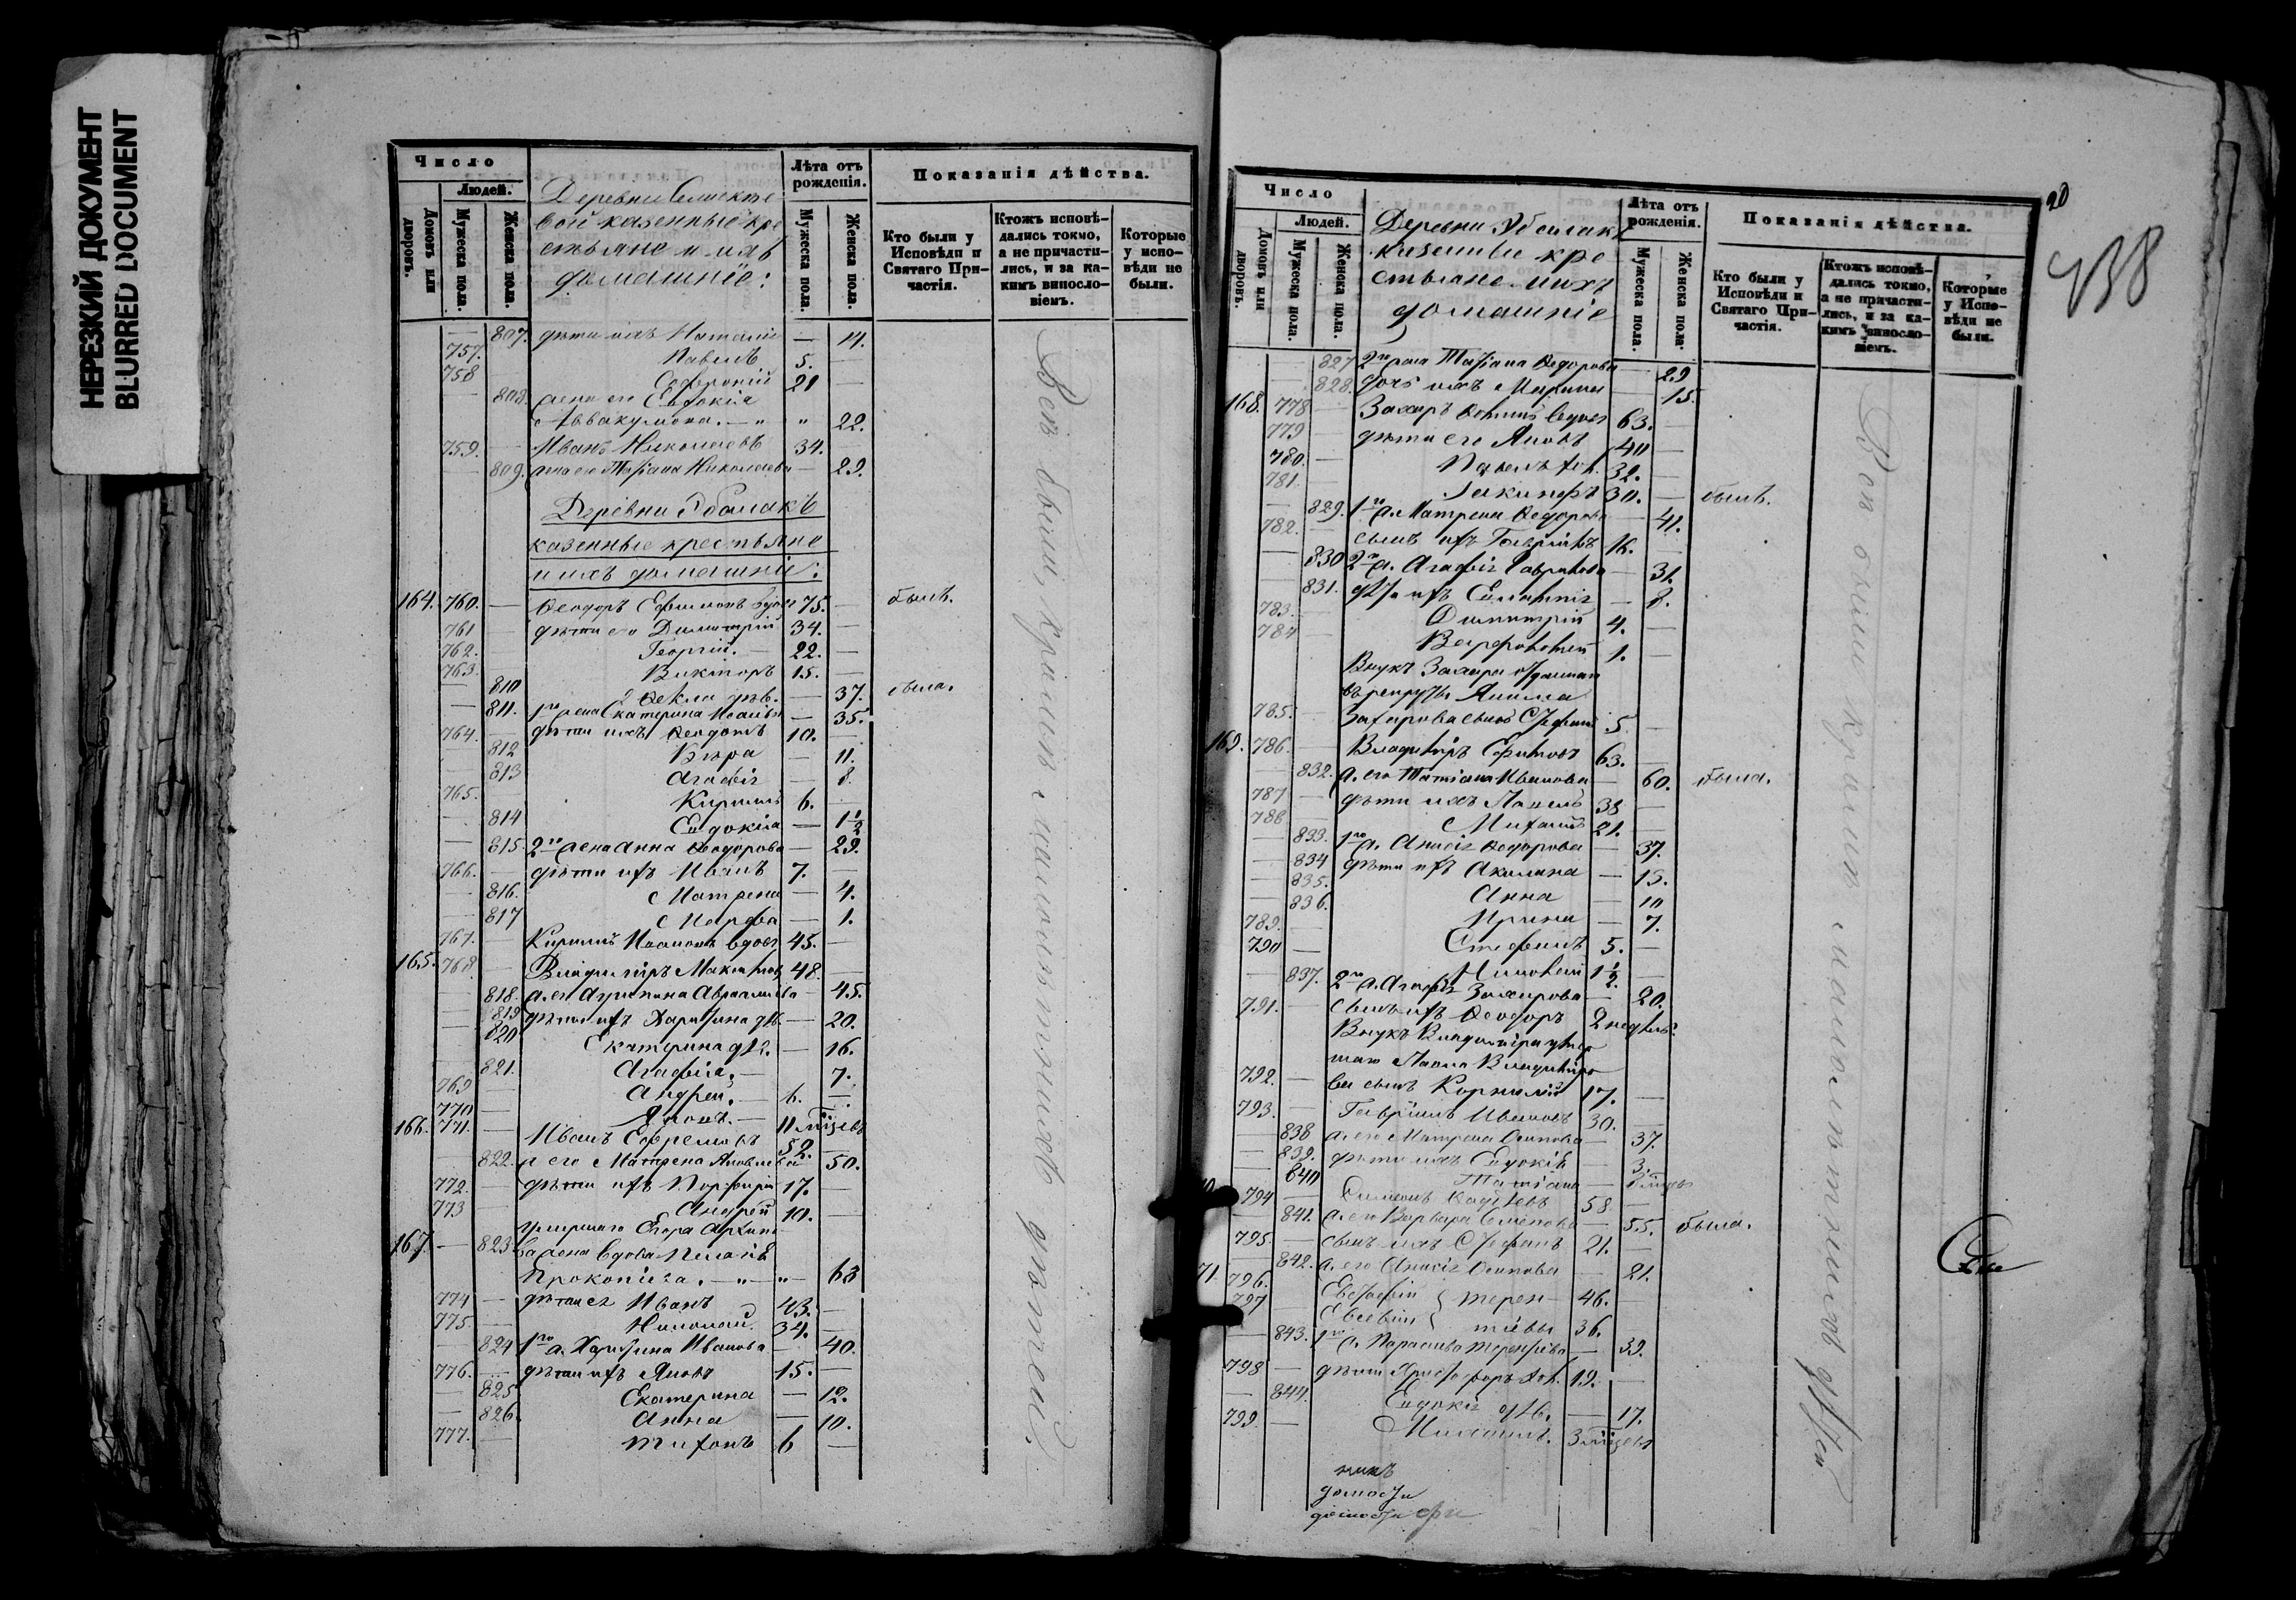 НЕРЕЗКИЙ ДОКУМЕНТ
BLURRED DOCUMENT
Число
Людей.
Домовъ или дворовъ.
Мужеска пола.
Женска пола.
Деревни
вой казенные кре
стьяне и ихъ
домашніе:
Лѣта отъ рожденія.
Мужеска пола.
Женска пола.
Показанія дѣйства.
Кто были у Исповѣди и Святаго Причастія.
Ктожъ исповѣдались токмо, а не причастились, и за какимъ винословіемъ.
Которые у исповѣди не были.
— 807. дѣти ихъ Наталія — 11.
757. Павелъ 5. —
758 Софроній 21 —
— 808. жена его Евдокія
Аввакумова. — „ „ 22.
759. — Иванъ Николаевъ 34.
— 809. жена его Татіана Николаева — 29.
Деревни Яболакъ
казенные крестьяне
и ихъ домашніе:
164. 760. — Ѳеодоръ Ефимовъ вдовъ 75. — былъ.
761 — дѣти его Димитрій 34. —
762. — Георгій. — 22. —
763. Викторъ 15. —
— 810 Ѳекла дѣв. — 37. была.
— 811. 1го жена Екатерина — 35.
764. — дѣти ихъ Ѳеодотъ 10. —
— 812 Вѣра — 11.
— 813 Агафія — 8.
765. Кириллъ 6. —
— 814 Евдокія — 1½
— 815. 2го жена Анна Ѳеодорова — 29.
766. — дѣти ихъ Иванъ 7. —
— 816. Матрена — 4.
— 817 Марфа — 1.
767. — Кириллъ вдовъ 45. —
165. 768. — Владиміръ 48. —
— 818. ж. его Агрипина Авраамова — 45.
— 819 дѣти ихъ Харитина дѣв. — 20.
— 820 Екатерина дѣв. — 16.
821. Агафія. — 7.
769 Андрей. — 6. —
770 — Яковъ. — 11 мѣсяцевъ
166. 771. — Иванъ Ефремовъ 52.
— 822. ж его Матрена Яковлева 50.
772. — дѣти ихъ Порфирій 17. —
773 — Андрей 10. —
умершаго Егора
167. — 823 жена вдова Пелагія
Прокопіева. — „ — „ — 63
774 — дѣти ея Иванъ 43. —
775 — Николай. 34. —
— 824 1го ж. Харитина Иванова — 40.
776. — дѣти ихъ Яковъ 15. —
— 825 Екатерина — 12.
— 826. Анна — 10.
777. — Тихонъ 6 —
Всѣ были кромѣ малолѣтнихъ дѣтей
20
438
Число
Людей.
Домовъ или дворовъ.
Мужеска пола.
Женска пола.
Деревни Яболакъ
казенные кре
стьяне и ихъ
домашніе
Лѣта отъ рожденія.
Мужеска пола.
Женска пола.
Показанія дѣйства.
Кто были у Исповѣди и Святаго Причастія.
Ктожъ исповѣдались токмо, а не причастились, и за какимъ винословіемъ.
Которые у Исповѣди не были.
827 2го жена Татіана Ѳедорова — 29
828. дочь ихъ Марина — 15.
168. 778 — Захаръ вдовъ 63. —
779 — дѣти его Яковъ 40 —
780. — Павелъ хол. 32. —
781. Іакинфъ 30. — былъ.
829. 1го ж. Матрена Ѳедорова — 41.
782. — сынъ ихъ Гавріилъ 16. —
— 830 2го ж. Агафія Гаврилова — 31.
— 831. дѣти ихъ — 8.
783. — Димитрій 4. —
784 — Варфоломей 1. —
Внукъ Захара отданнаго
въ рекруты
785. Захарова сынъ Стефанъ 5 —
169. 786. — Владиміръ Ефимовъ 63. —
— 832. ж. его Татіана Иванова — 60. была.
787 — дѣти ихъ 38 —
788 — Михаилъ 21. —
— 833. 1го ж. Анисія Ѳедорова — 37.
— 834 дѣти ихъ Акилина — 13.
— 835. Анна — 10
— 836. Ирина — 7.
789. — Стефанъ 5. —
790 — Тимофей 1½ —
— 837. 2го ж. Агафія Захарова — 20.
791. — сынъ ихъ Ѳеодоръ 2 недѣль
Внукъ Владиміра умер
шаго Владиміро
792. — ва сынъ Корнилій 17. —
793. — Гавріилъ Ивановъ 30. —
— 838 ж. его Матрена Осипова — 37.
— 839. дѣти ихъ Евдокія — 3.
840 Татіана — мѣсяцевъ
794 — Симеонъ 58 —
— 841. ж. его Варвара Семенова — 55. была.
795 — сынъ ихъ Стефанъ 21. —
— 842. ж. его Анисія Осипова — 21.
71. 796. 46. —
797 Евсевій терентіевы 36. —
— 843. 1го ж. Параскева Терентіева — 39.
798 — дѣти Христофоръ хол. 19. —
— 844. Евдокія дѣв. — 17.
799. — Михаилъ. 3 мѣсяцевъ
Всѣ были кромѣ малолѣтнихъ дѣтей